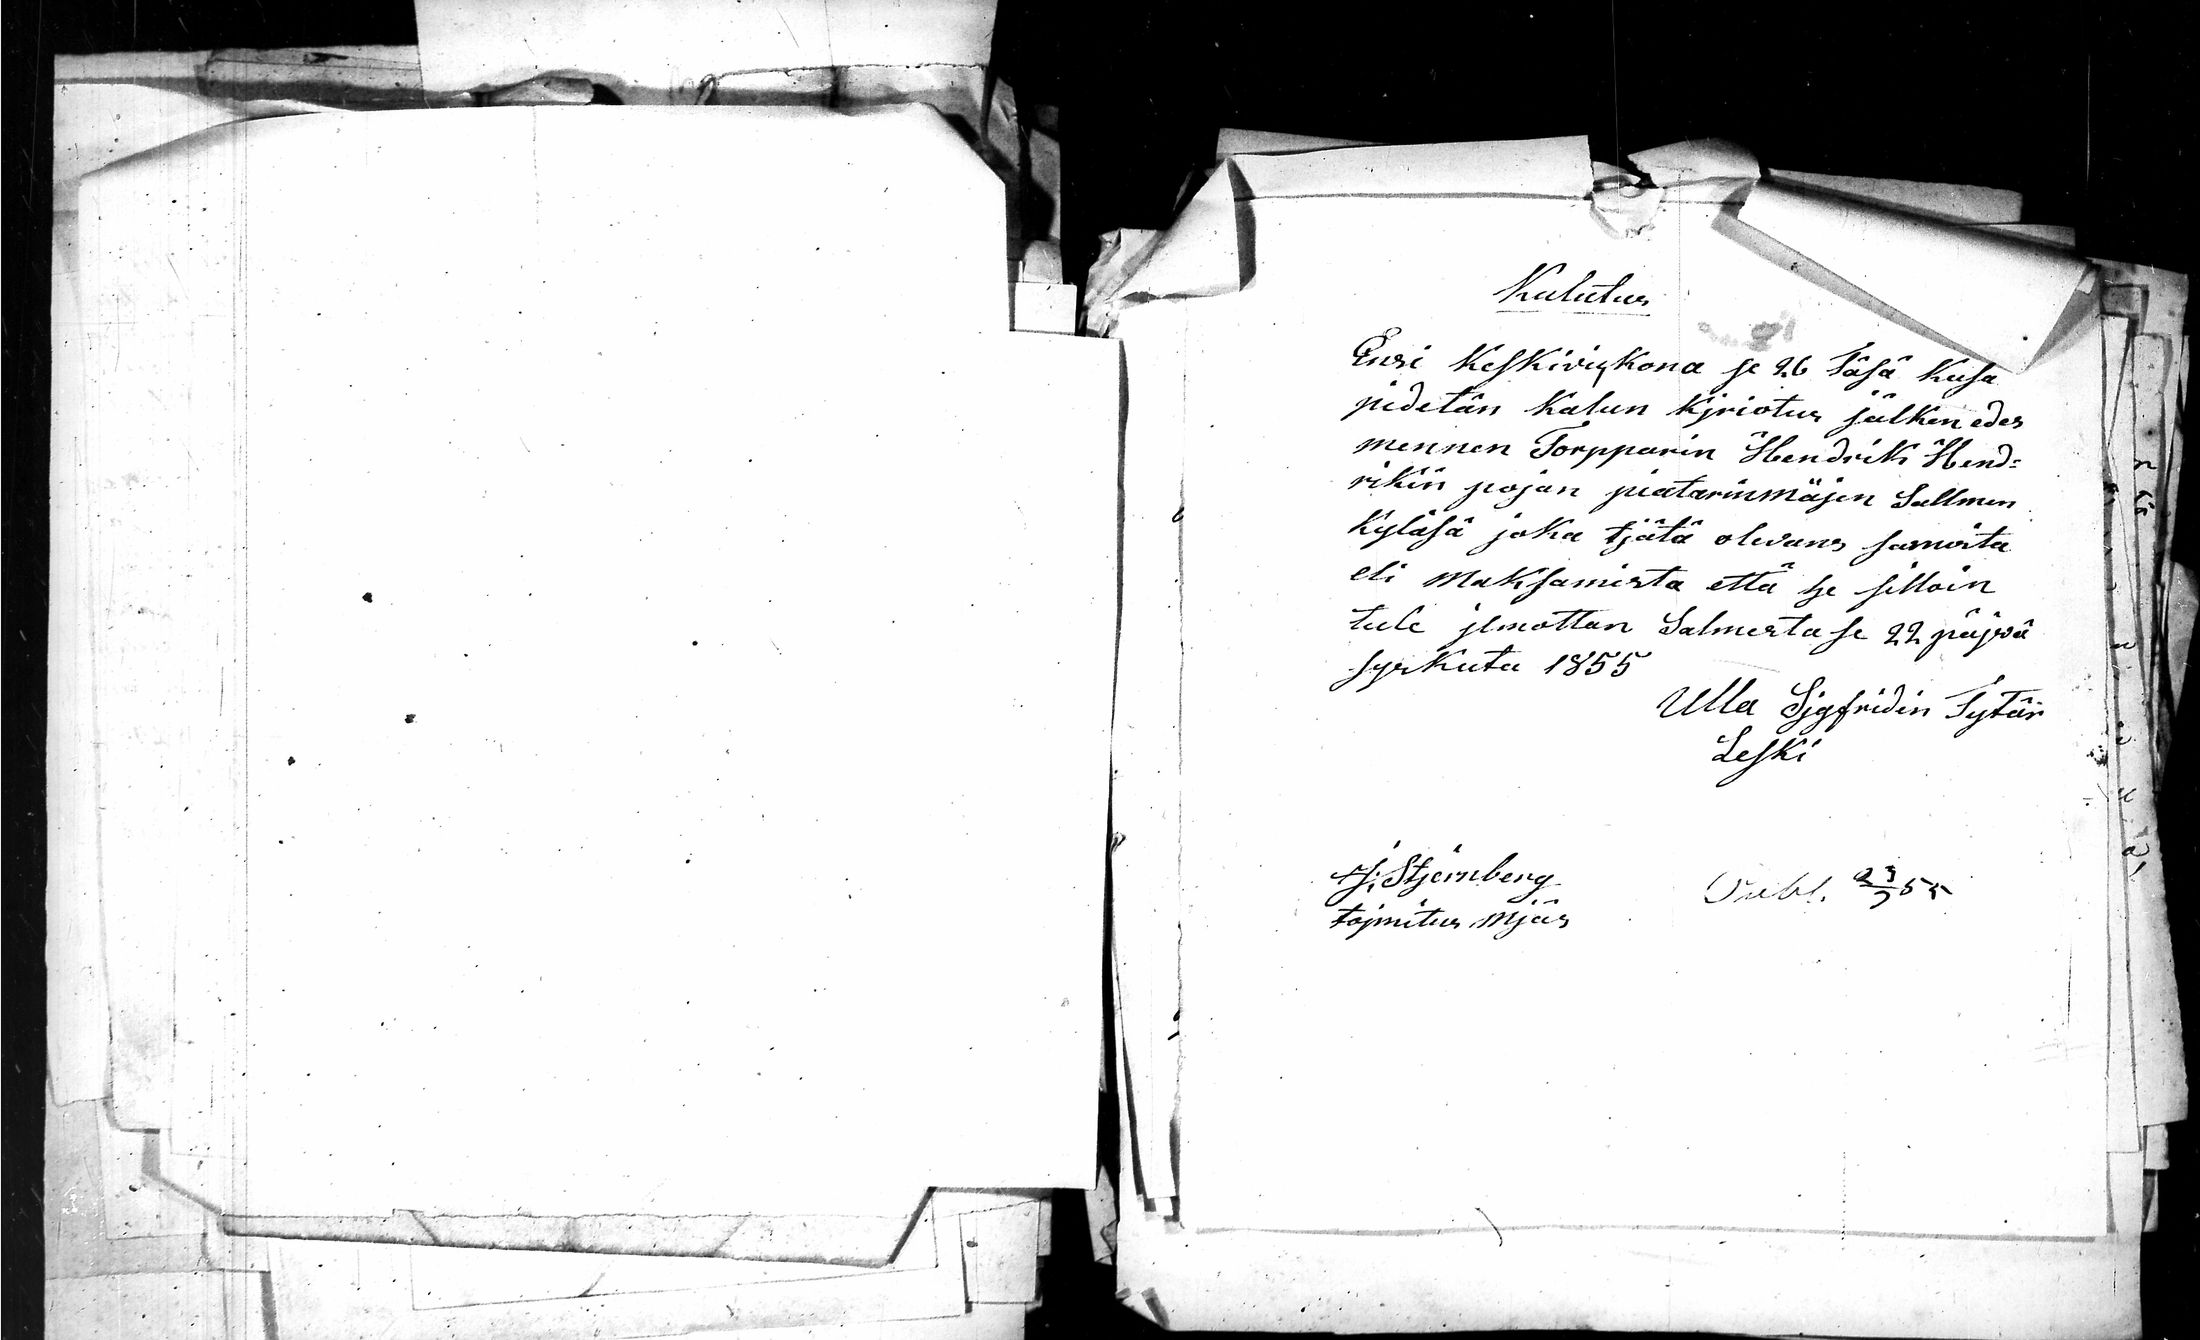 Kulutus
Ensi Keskiviykona se 26 Täsä Kusa
pidetän Kalun Kjriotus jälken edes
mennen Torpparin Hendrik Hend=
rikin pojan pietarinmäjen Sallmen
Kyläsä joka tjätä olevans samista
eli Maksamista että se silloin
tule jlmottan Salmesta se 22 päjvä
syskuta 1855
Ulla Sjgfridin Tytär
Leski
J. Stjernberg
tojmitus Mjäs
Publ. 23/9 55